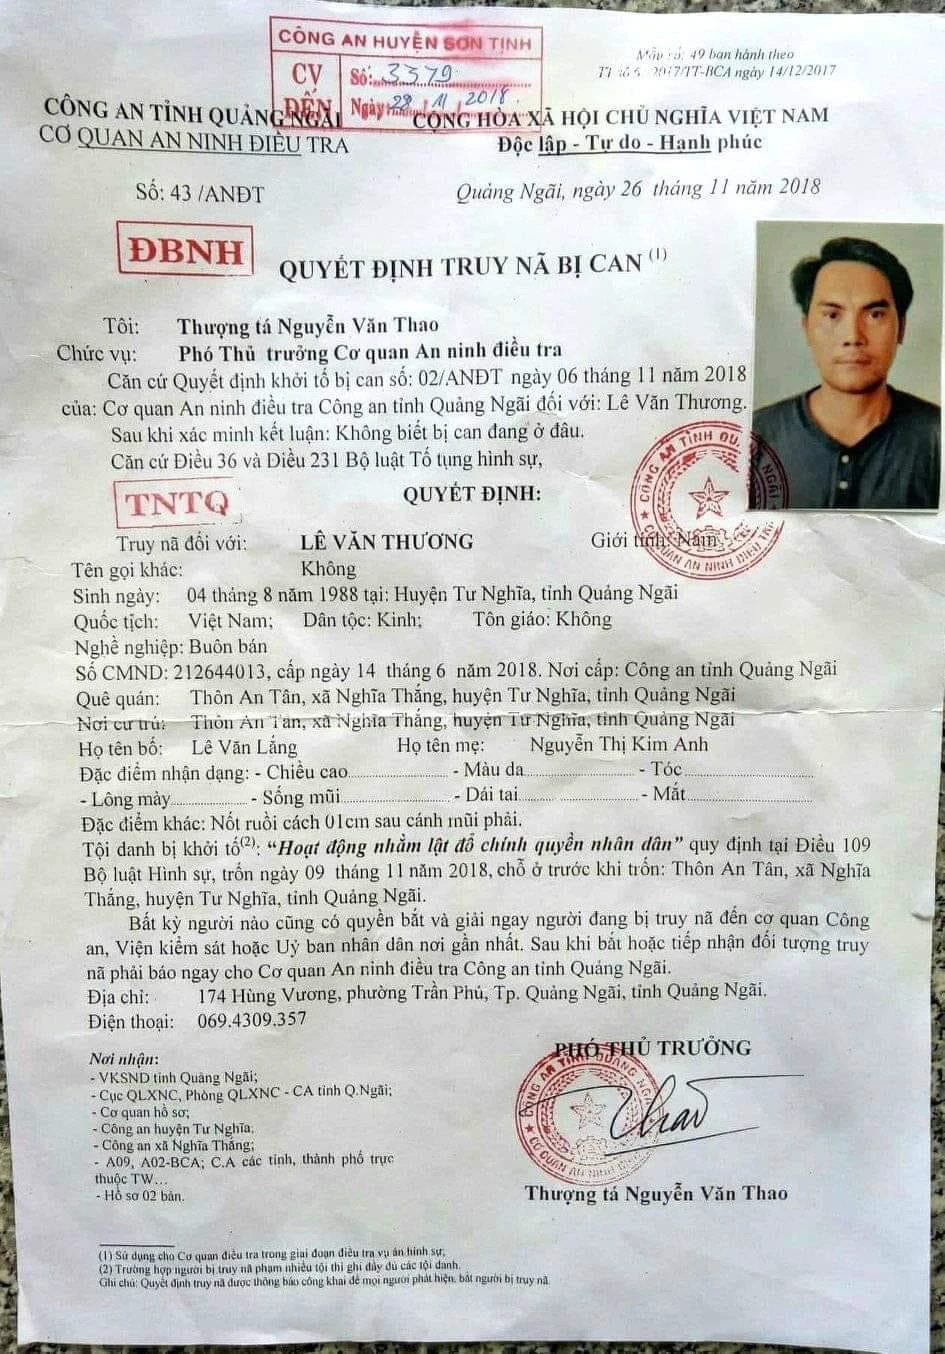 CÔNG AN HUYỆN SƠN TỊNH
CV
ĐẾN
Số: 3379
Ngày 28/11/2018
Mẫu số: 49 ban hành theo
2017/TT-BCA ngày 14/12/2017
CÔNG AN TỈNH QUẢNG NGÃI
CƠ QUAN AN NINH ĐIỀU TRA
CỘNG HÒA XÃ HỘI CHỦ NGHĨA VIỆT NAM
Độc lập - Tự do - Hạnh phúc
Số: 43 /ANĐT
Quảng Ngãi, ngày 26 tháng 11 năm 2018
ĐBNH
QUYẾT ĐỊNH TRUY NÃ BỊ CAN (1)
Tôi: Thượng tá Nguyễn Văn Thao
Chức vụ: Phó Thủ trưởng Cơ quan An ninh điều tra
Căn cứ Quyết định khởi tố bị can số: 02/ANĐT ngày 06 tháng 11 năm 2018
của: Cơ quan An ninh điều tra Công an tỉnh Quảng Ngãi đối với: Lê Văn Thương.
Sau khi xác minh kết luận: Không biết bị can đang ở đâu.
Căn cứ Điều 36 và Điều 231 Bộ luật Tố tụng hình sự,
TNTQ
QUYẾT ĐỊNH:
CÔNG AN TỈNH QUẢNG NGÃI
CƠ QUAN AN NINH ĐIỀU TRA
Truy nã đối với: LÊ VĂN THƯƠNG Giới tính: Nam
Tên gọi khác: Không
Sinh ngày: 04 tháng 8 năm 1988 tại: Huyện Tư Nghĩa, tỉnh Quảng Ngãi
Quốc tịch: Việt Nam; Dân tộc: Kinh; Tôn giáo: Không
Nghề nghiệp: Buôn bán
Số CMND: 212644013, cấp ngày 14 tháng 6 năm 2018. Nơi cấp: Công an tỉnh Quảng Ngãi
Quê quán: Thôn An Tân, xã Nghĩa Thắng, huyện Tư Nghĩa, tỉnh Quảng Ngãi
Nơi cư trú: Thôn An Tân, xã Nghĩa Thắng, huyện Tư Nghĩa, tỉnh Quảng Ngãi
Họ tên bố: Lê Văn Lắng Họ tên mẹ: Nguyễn Thị Kim Anh
Đặc điểm nhận dạng: - Chiều cao - Màu da - Tóc
- Lông mày - Sống mũi - Dái tai - Mắt
Đặc điểm khác: Nốt ruồi cách 01cm sau cánh mũi phải.
Tội danh bị khởi tố(2): “Hoạt động nhằm lật đổ chính quyền nhân dân” quy định tại Điều 109
Bộ luật Hình sự, trốn ngày 09 tháng 11 năm 2018, chỗ ở trước khi trốn: Thôn An Tân, xã Nghĩa
Thắng, huyện Tư Nghĩa, tỉnh Quảng Ngãi.
Bất kỳ người nào cũng có quyền bắt và giải ngay người đang bị truy nã đến cơ quan Công
an, Viện kiểm sát hoặc Uỷ ban nhân dân nơi gần nhất. Sau khi bắt hoặc tiếp nhận đối tượng truy
nã phải báo ngay cho Cơ quan An ninh điều tra Công an tỉnh Quảng Ngãi.
Địa chỉ: 174 Hùng Vương, phường Trần Phú, Tp. Quảng Ngãi, tỉnh Quảng Ngãi.
Điện thoại: 069.4309.357
Nơi nhận:
- VKSND tỉnh Quảng Ngãi;
- Cục QLXNC, Phòng QLXNC - CA tỉnh Q.Ngãi;
- Cơ quan hồ sơ;
- Công an huyện Tư Nghĩa;
- Công an xã Nghĩa Thắng;
- A09, A02-BCA; C.A các tỉnh, thành phố trực
thuộc TW…
- Hồ sơ 02 bản.
PHÓ THỦ TRƯỞNG
CÔNG AN TỈNH QUẢNG NGÃI
CƠ QUAN AN NINH
Thao
Thượng tá Nguyễn Văn Thao
(1) Sử dụng cho Cơ quan điều tra trong giai đoạn điều tra vụ án hình sự;
(2) Trường hợp người bị truy nã phạm nhiều tội thì ghi đầy đủ các tội danh.
Ghi chú: Quyết định truy nã được thông báo công khai để mọi người phát hiện, bắt người bị truy nã.